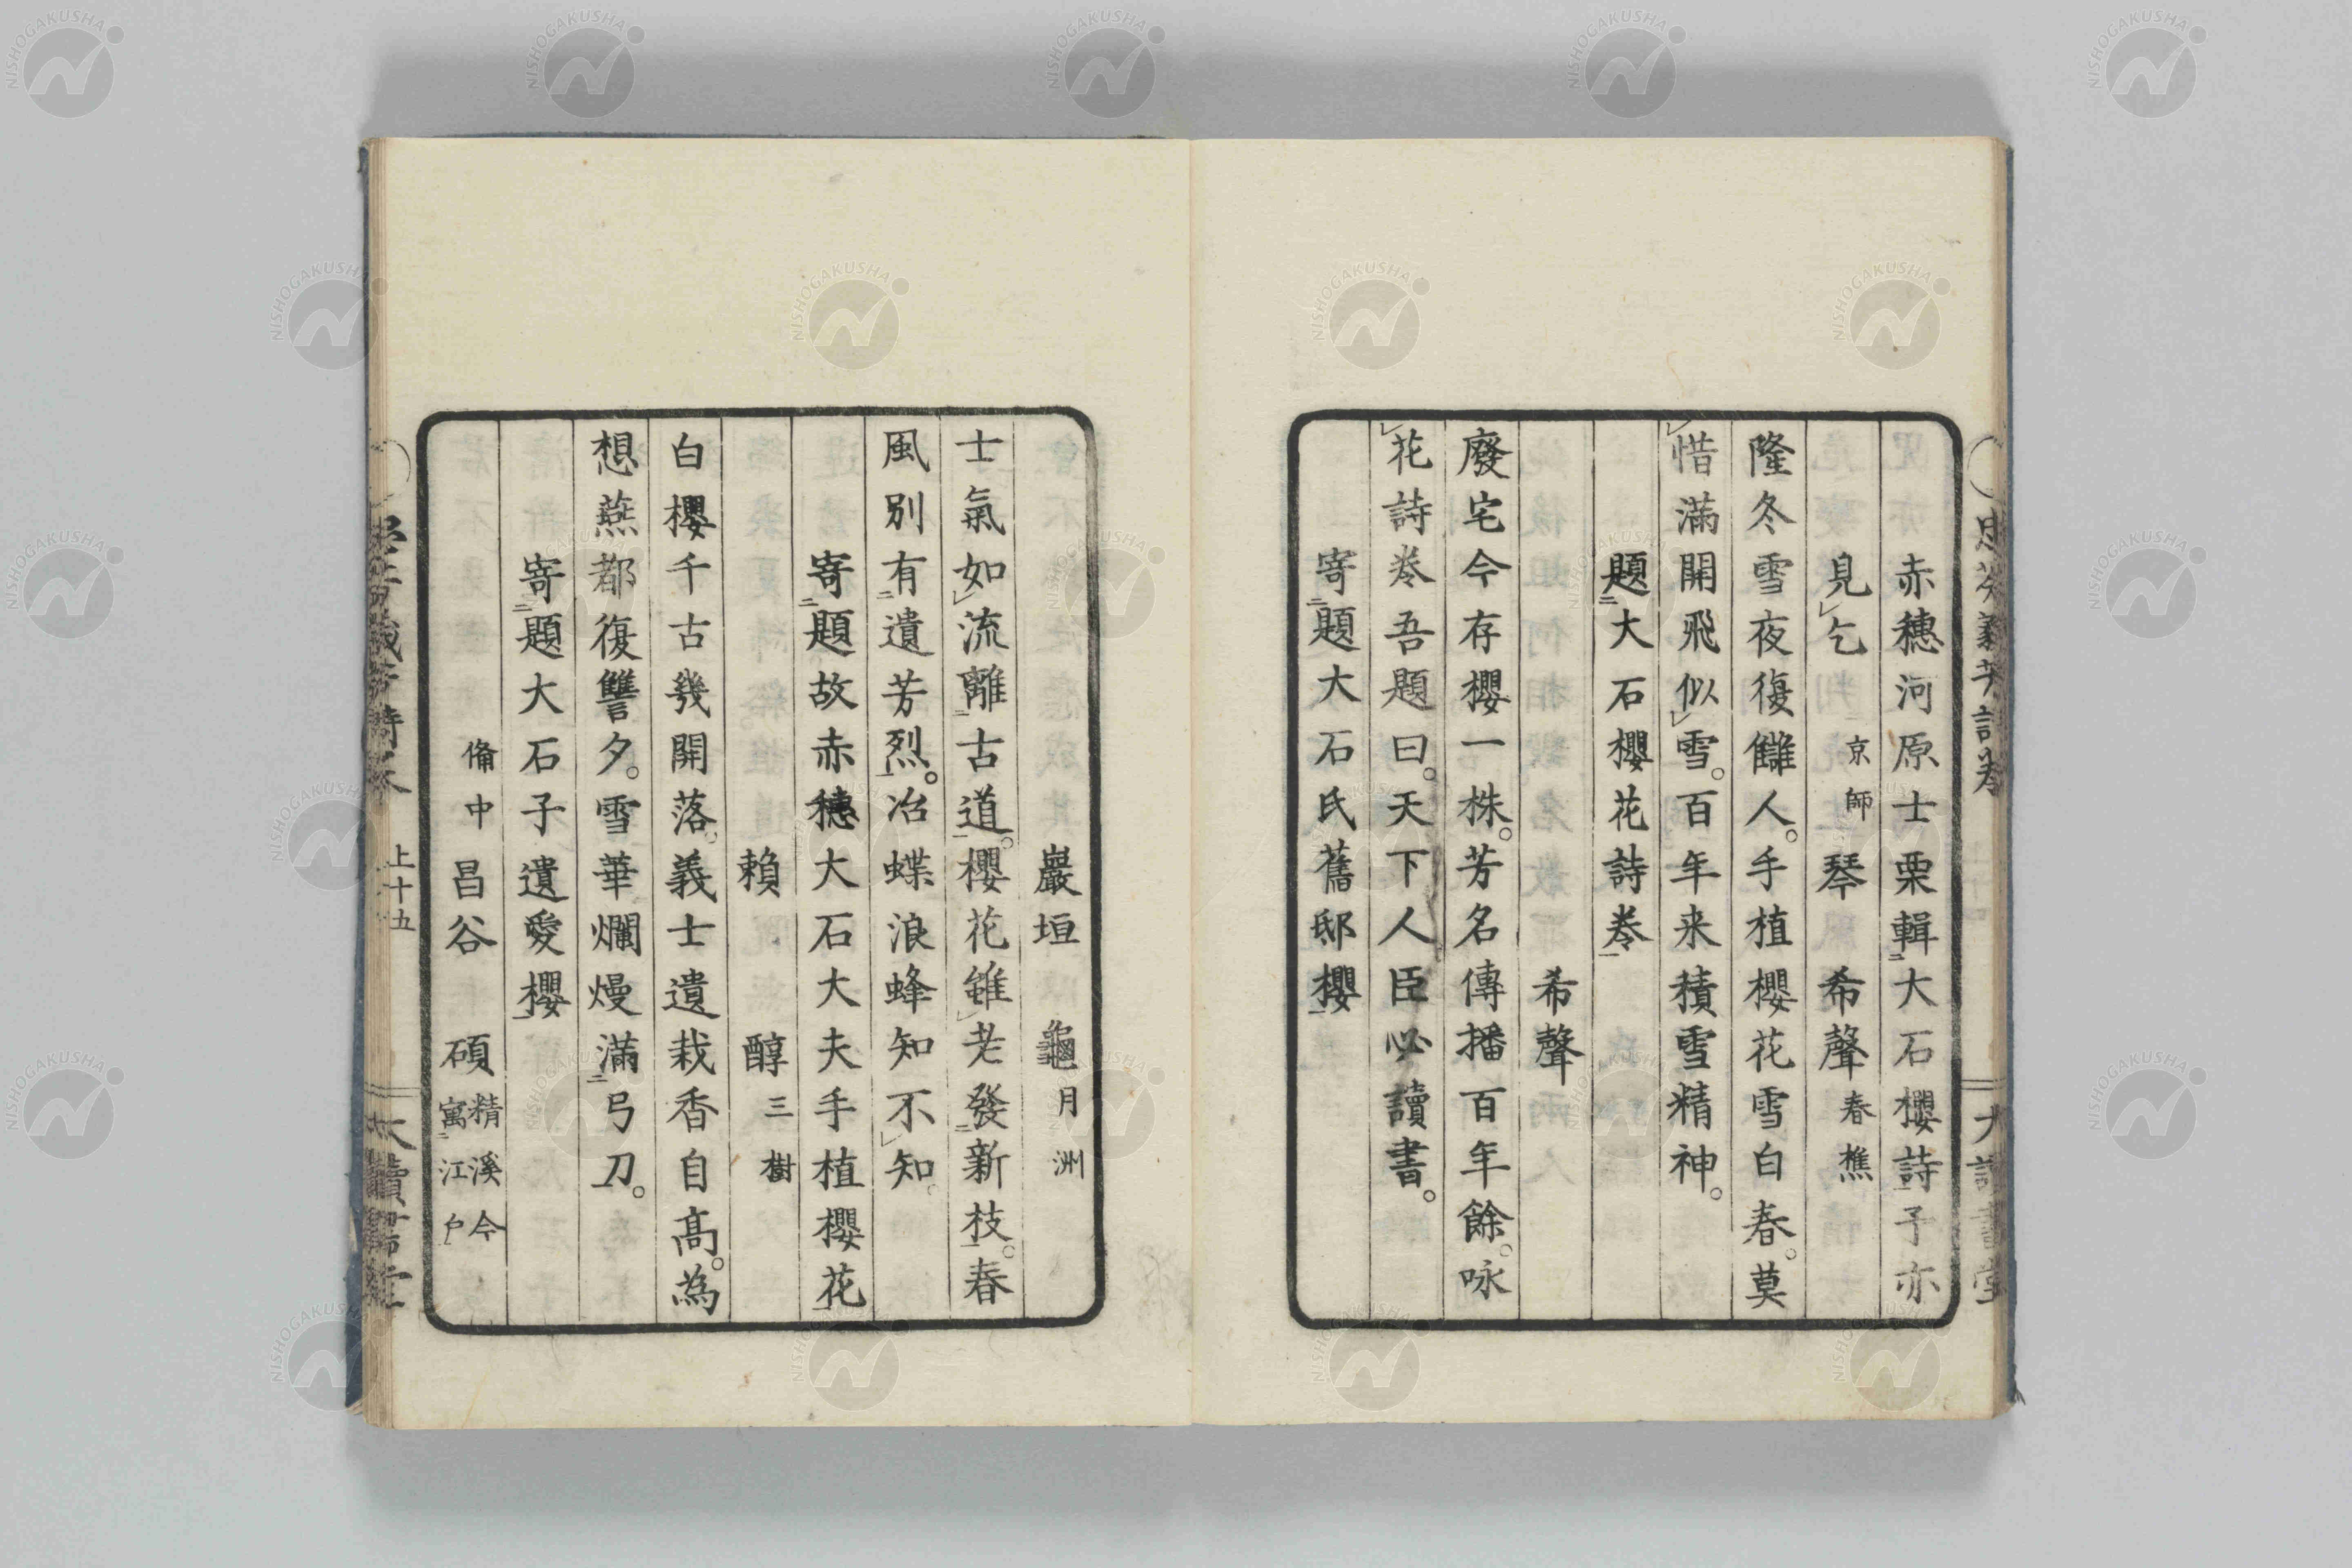 赤穗河原士栗輯大石櫻詩予亦
見乞 京師 琴 希聲 春樵
隆冬雪夜復讎人。手植櫻花雪白春。莫
惜滿開飛似雪。百年来積雪精神。
題大石櫻花詩卷
希聲
廢宅今存櫻一株。芳名傳播百年餘。咏
花詩卷吾題曰。天下人臣必讀書。
寄題大石氏舊邸櫻
巖垣 龜 月洲
士氣如流離古道。櫻花雖老發新枝。春
風別有遺芳烈。冶蝶浪蜂知不知。
寄題故赤穗大石大夫手植櫻花
賴 醇 三樹
白櫻千古幾開落。義士遺栽香自高。為
想燕都復讐夕。雪華爛熳滿弓刀。
寄題大石子遺愛櫻
備中 昌谷 碩 精溪今寓江戶
上十五
NISHOGAKUSHA